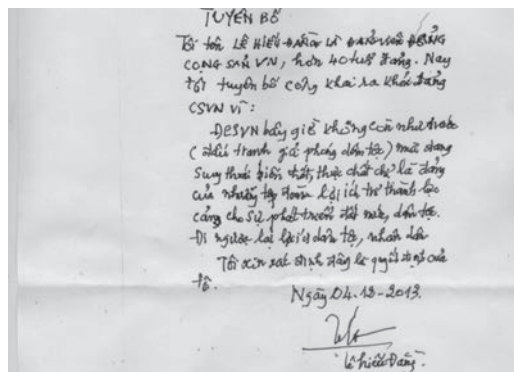 TUYÊN BỐ
Tôi tên LÊ HIẾU ĐẰNG LÀ ĐẢNG VIÊN ĐẢNG
CỘNG SẢN VN, hơn 40 tuổi đảng. Nay
tôi tuyên bố công khai ra khỏi đảng
CSVN vì:
- ĐCSVN bây giờ không còn như trước
(đấu tranh giải phóng dân tộc) mà đang
suy thoái biến chất, thực chất chỉ là đảng
của những tập đoàn lợi ích trở thành lực
cảng cho sự phát triển đất nước, dân tộc.
Đi ngược lại lợi ích dân tộc, nhân dân
Tôi xin xác định đây là quyết định của
tôi.
Ngày 04-12-2013.
Lê Hiếu Đằng.